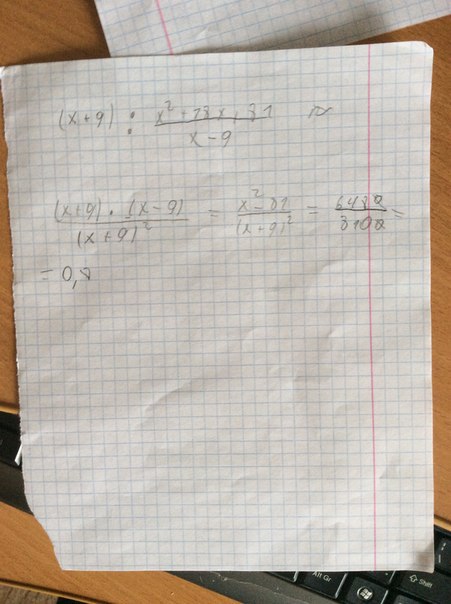 (x+9) : x²+18x+81 / x-9 =
(x+9) · (x-9) / (x+9)² = x²-81 / (x+9)² = 6480 / 8100 =
= 0,8
Alt Gr
Shift